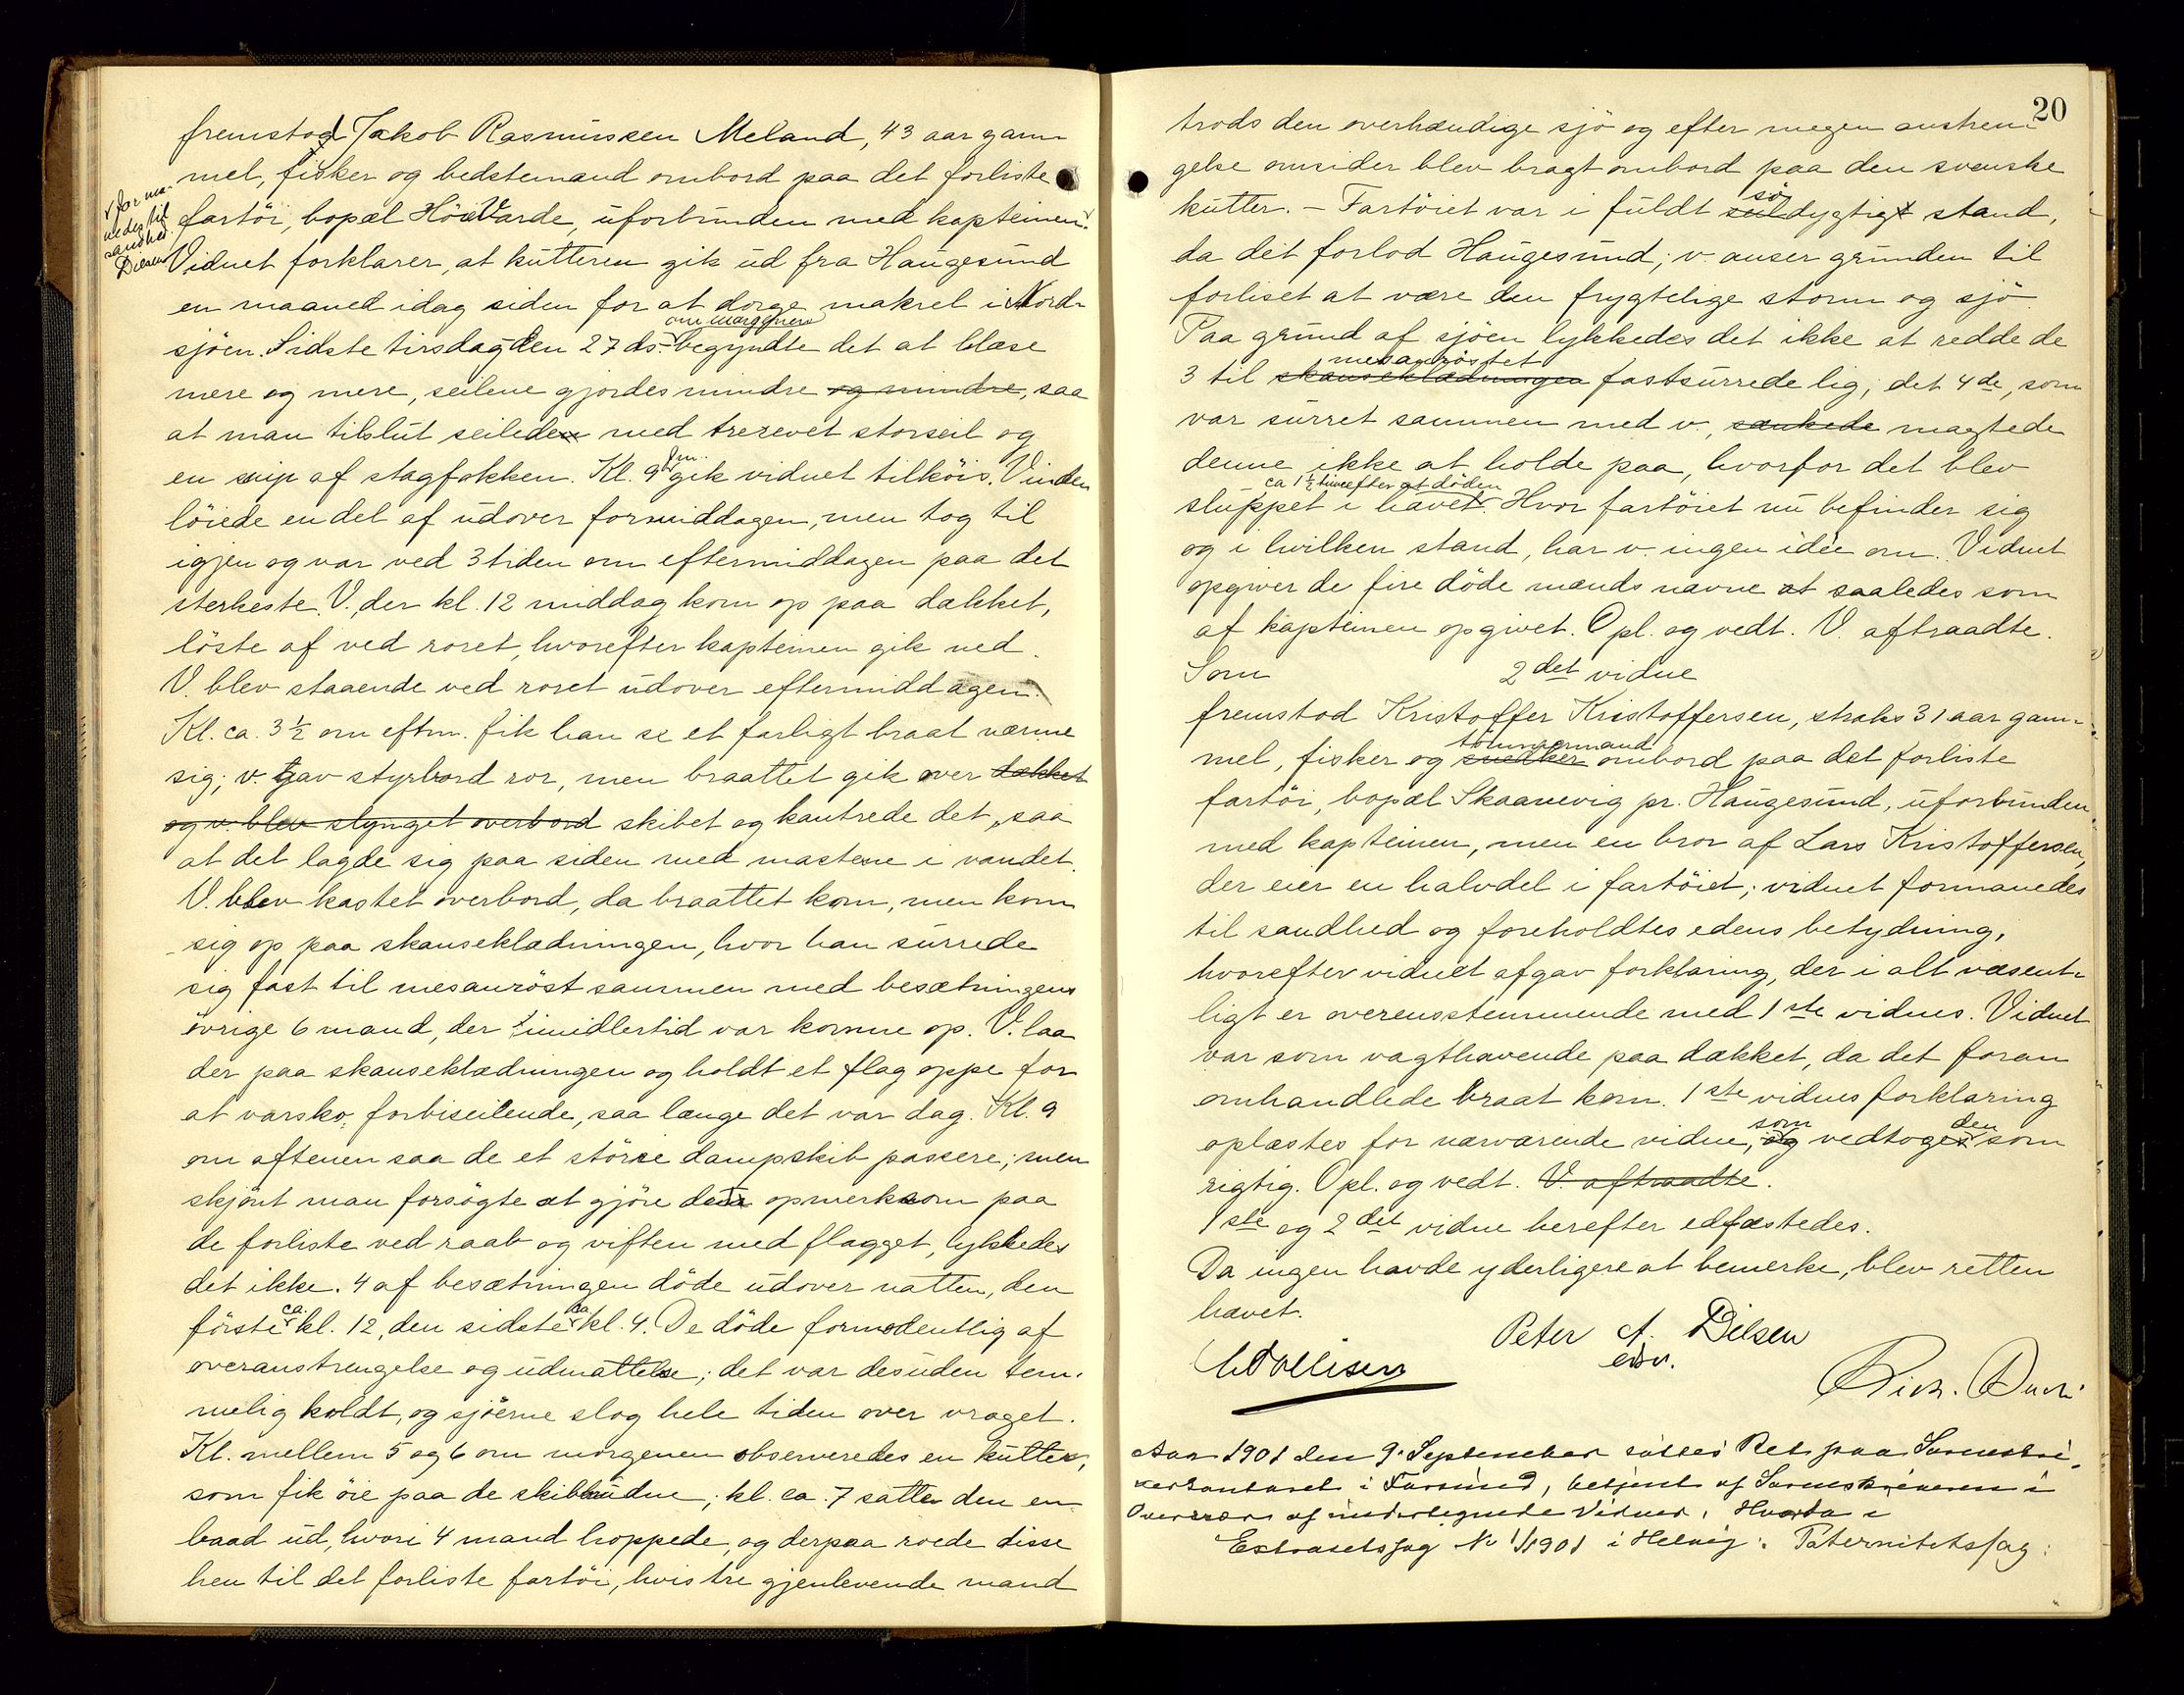 fremstod Jakob Rasmussen Meland, 43 aar gam-
mel, fisker og bedstemand ombord paa det forliste
v forma-
nedes til
sandhed.
Dilsen
fartöi, bopæl Höievarde, uforbunden med kapteinen.
Vidnet forklarer, at kutteren gik ud fra Haugesund
en maaned idag siden for at dorge makrel i Nord-
sjöen. Sidste tirsdag den 27 ds. om morgenen begyndte det at blæse
mere og mere, seilene gjordes mindre og mindre, saa
at man tilslut seilede med trerevet storseil og
en snip af stagfokken. Kl. 9 fm. gik vidnet tilköis. Vinden
löiede en del af udover formiddagen, men tog til
igjen og var ved 3 tiden om eftermiddagen paa det
sterkeste. V. der kl. 12 middag kom op paa dækket,
löste af ved roret, hvorefter kapteinen gik ned.
V. blev staaende ved roret udover eftermiddagen.
Kl. ca. 3½ om eftm. fik han se et farligt braat nærme
sig; v. gav styrbord ror, men braattet gik over dækket
og v. blev slynget overbord skibet og kantrede det, saa
at det lagde sig paa siden med mastene i vandet.
V. blev kastet overbord, da braattet kom, men kom
sig op paa skanseklædningen, hvor han surrede
sig fast til mesanröst sammen med besætningens
övrige 6 mand, der imidlertid var komne op. V. laa
der paa skanseklædningen og holdt et flag oppe for
at varsko forbiseilende, saa længe det var dag. Kl. 9
om aftenen saa de et större dampskib passere; men
skjönt man forsögte at gjöre det opmerksom paa
de forliste ved raab og viften med flagget, lykkedes
det ikke. 4 af besætningen döde udover natten, den
förste ca. kl. 12, den sidste ca. kl. 4. De döde formodentlig af
overanstrengelse og udmattelse; det var desuden tem-
melig koldt, og sjöerne slog hele tiden over vraget.
Kl. mellem 5 og 6 om morgenen observeredes en kutter,
som fik öie paa de skibbrudne; kl. ca. 7 satte den en
baad ud, hvori 4 mand hoppede, og derpaa roede disse
hen til det forliste fartöi, hvis tre gjenlevende mand
20
trods den overhændige sjö og efter megen anstren-
gelse omsider blev bragt ombord paa den svenske
kutter. - Fartöiet var i fuldt södygtig stand,
da det forlod Haugesund; v. anser grunden til
forliset at være den frygtelige storm og sjö
Paa grund af sjöen lykkedes det ikke at redde de
3 til skanseklædningen mesanröstet fastsurrede lig; det 4de, som
var surret sammen med v., sankede magtede
denne ikke at holde paa, hvorfor det blev
sluppet i havet ca 1½ time efter at döden. Hvor fartöiet nu befinder sig
og i hvilken stand, har v. ingen idée om. Vidnet
opgiver de fire döde mænds navne saaledes som
af kapteinen opgivet. Opl. og vedt. V. aftraadte.
Som 2det vidne
fremstod Kristoffer Kristoffersen, straks 31 aar gam-
mel, fisker og snedker tömmermand ombord paa det forliste
fartöi, bopæl Skaanevig pr. Haugesund, uforbunden
med kapteinen, men en bror af Lars Kristoffersen,
der eier en halvdel i fartöiet; vidnet formanedes
til sandhed og foreholdtes edens betydning,
hvorefter vidnet afgav forklaring, der i alt væsent-
ligt er overensstemmende med 1ste vidnes. Vidnet
var som vagthavende paa dækket, da det foran
omhandlede braat kom. 1ste vidnes forklaring
oplæstes for nærværende vidne, og som vedtoges den som
rigtig. Opl. og vedt. V. aftraadte.
1ste og 2det vidne herefter edfæstedes.
Da ingen havde yderligere at bemerke, blev retten
hævet.
Peter A. Dilsen
edsv.
Aar 1901 den 9. September sattes Ret paa Sorenskri-
verkontoret i Farsund, betjent af Sorenskriveren i
Overvær af undertegnede Vidner, Hvorda i
Extraretssag No 1/1901 i Helvig: Paternitetssag: